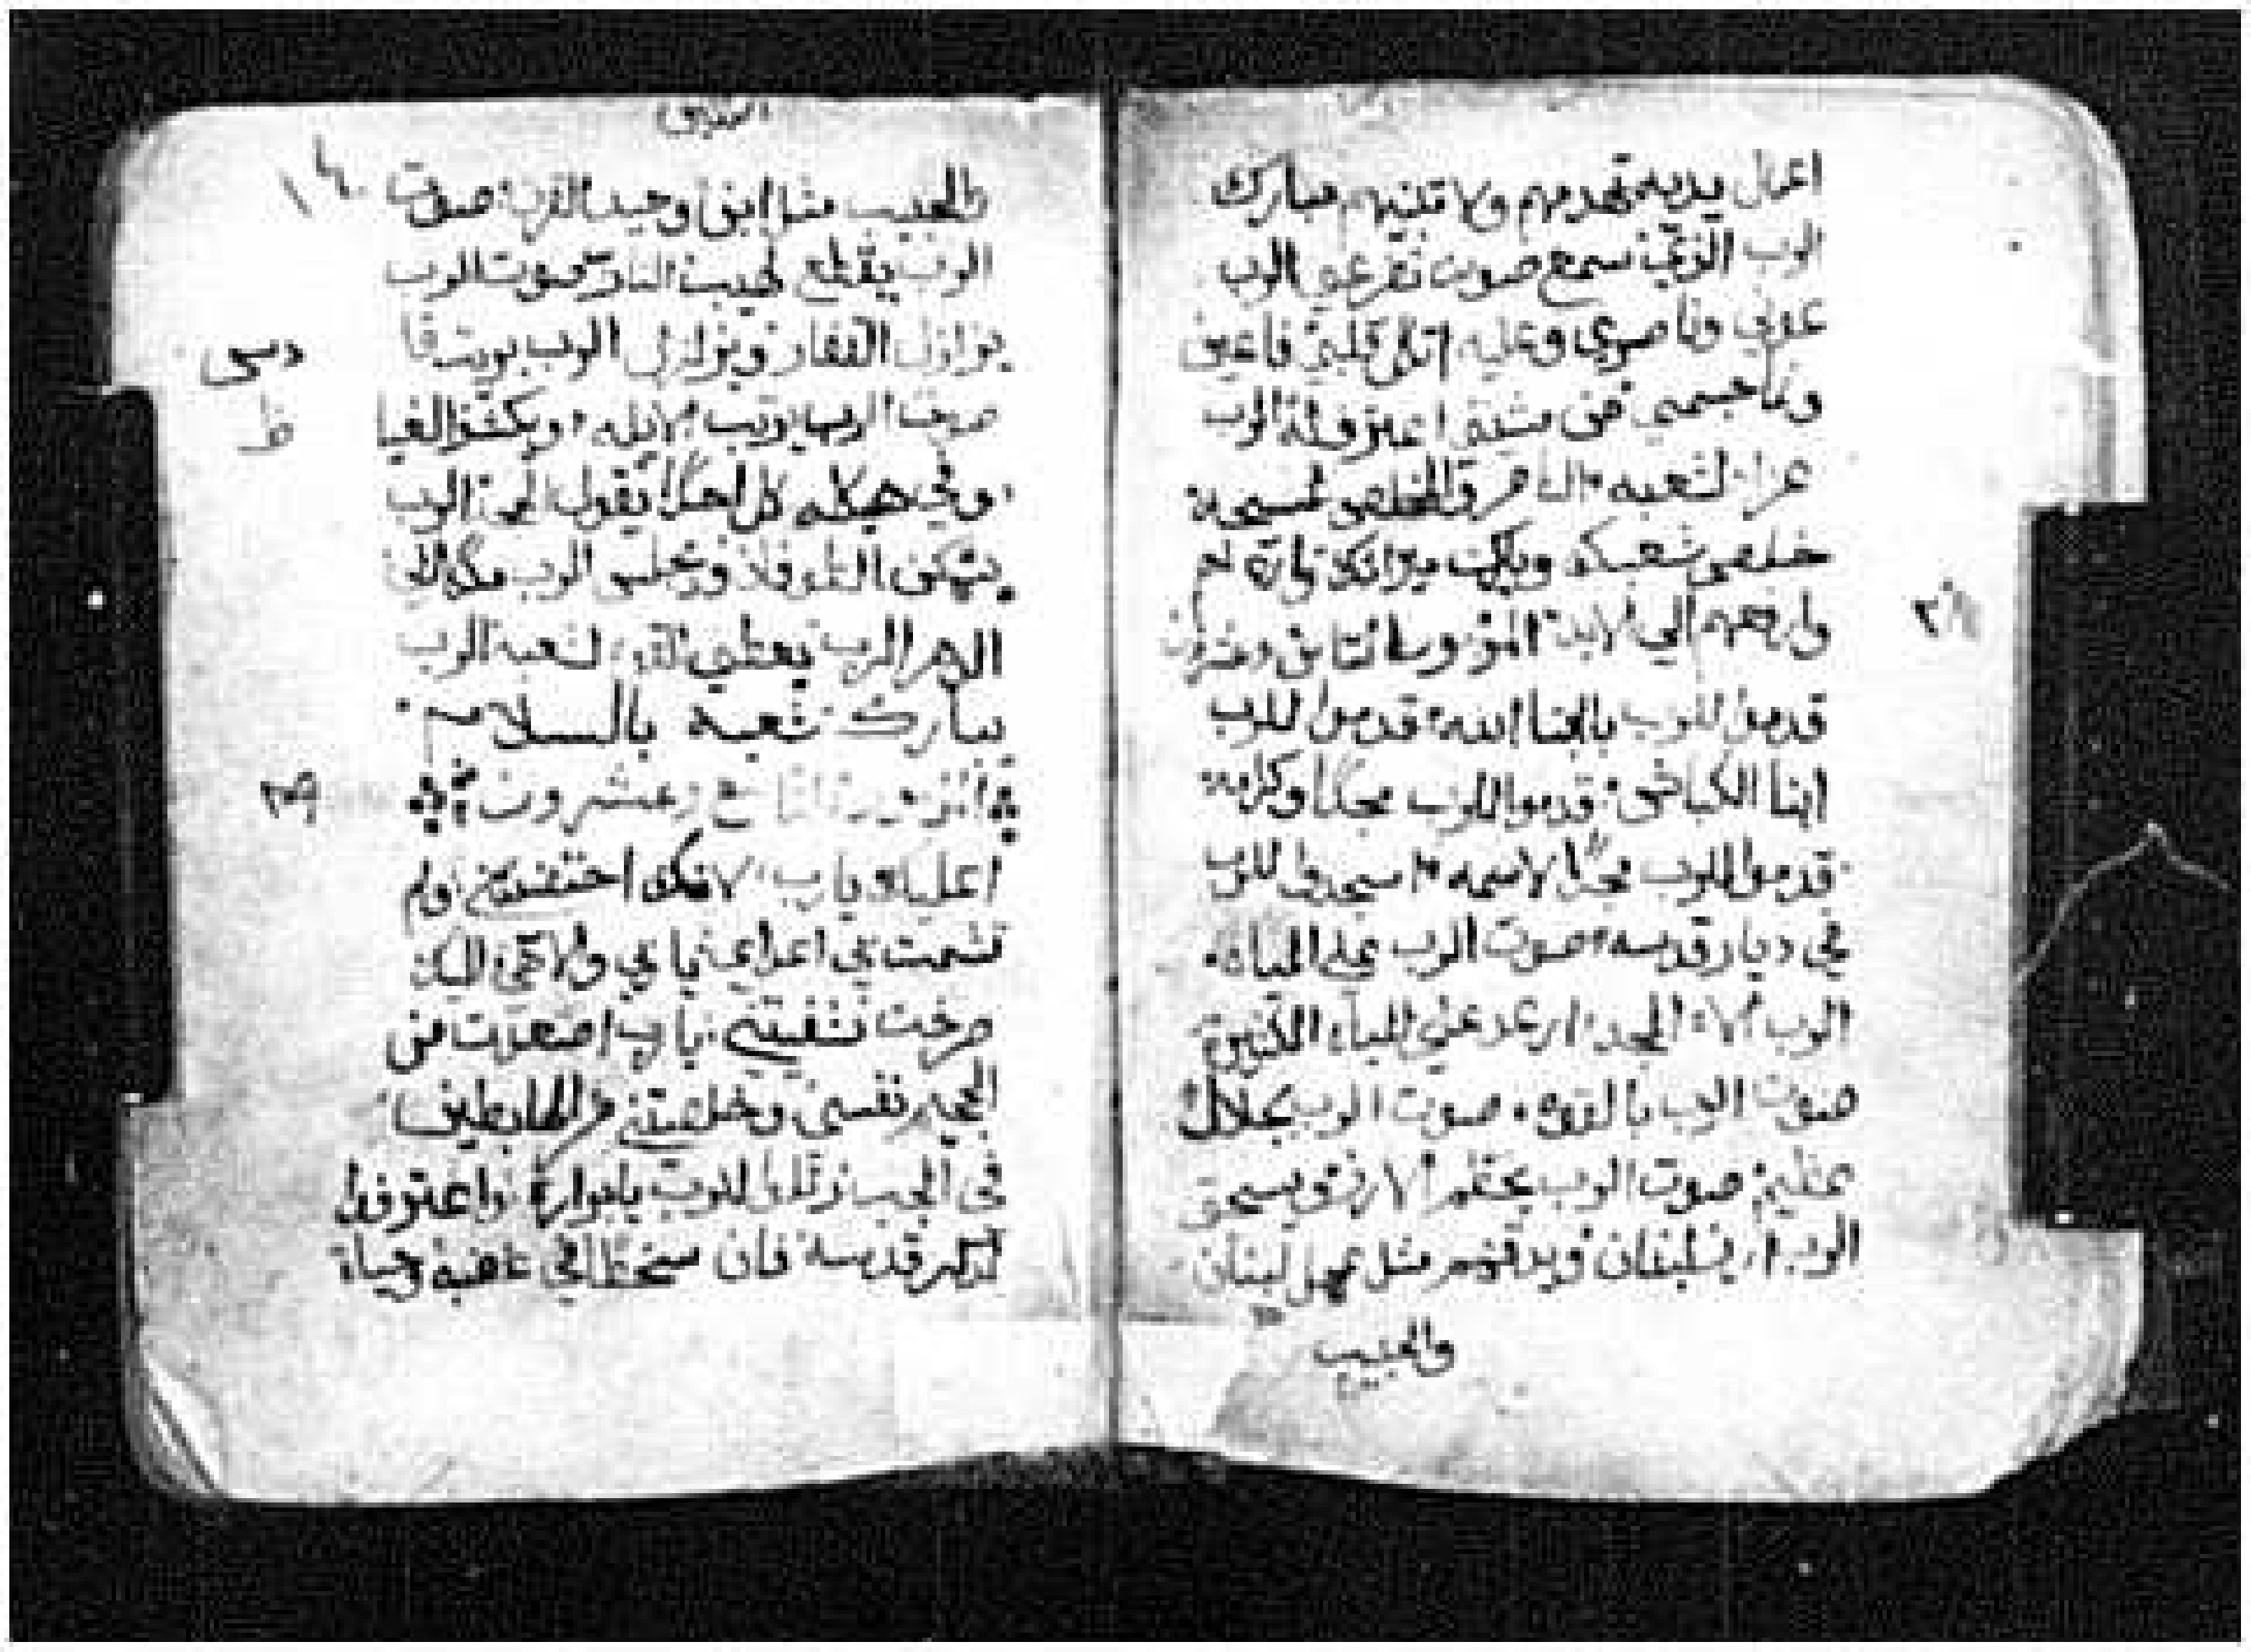 اعمال يديه تهدمهم ولا تبنيهم مبارك
الرب الذي سمع صوت تضرعي الرب
عوني وناصري وعليه اتكل قلبي فاعين
ونما جسمي من مشيتي اعترف له الرب
عزا لشعبه الناصر والمخلص لمسيحه
خلص شعبك وبارك ميراثك وارعاهم
وارفعهم الي الابد المزمور الثامن وعشرون
قدموا للرب يا ابنا الله قدموا للرب
ابنا الكباش قدموا للرب مجدا وكرامة
قدموا للرب مجدا لاسمه اسجدوا للرب
في ديار قدسه صوت الرب علي المياه
الرب الاه المجد ارعد علي المياه الكثيرة
صوت الرب بالقوه صوت الرب بجلال
عظيم صوت الرب يحطم الارز ويسحق
الرب ارز لبنان ويدقهم مثل عجل لبنان
والحبيب
والحبيب مثل ابن وحيد القرن صوت
الرب يقطع لهيب النار صوت الرب
يزلزل القفار ويزلزل الرب برية قا
دس
صوت الرب يرتب الايله ويكشف الغيا
ض
وفي هيكله كل احدا يقول المجد الرب
يسكن الطوفان ويجلس الرب ملكا الي
الدهر الرب يعطي القوه لشعبه الرب
يبارك شعبه بالسلام
المزمور التاسع وعشرون
٢٩
اعليك يا رب لانك احتضنتني ولم
تشمت بي اعداي ياربي والاهي اليك
صرخت فشفيتني يارب اصعدت من
الجحيم نفسي وخلصتني من الهابطين
في الجب رتلوا للرب يا ابراره واعترفوا
لذكر قدسه فان سخطا في غضبه وحياة